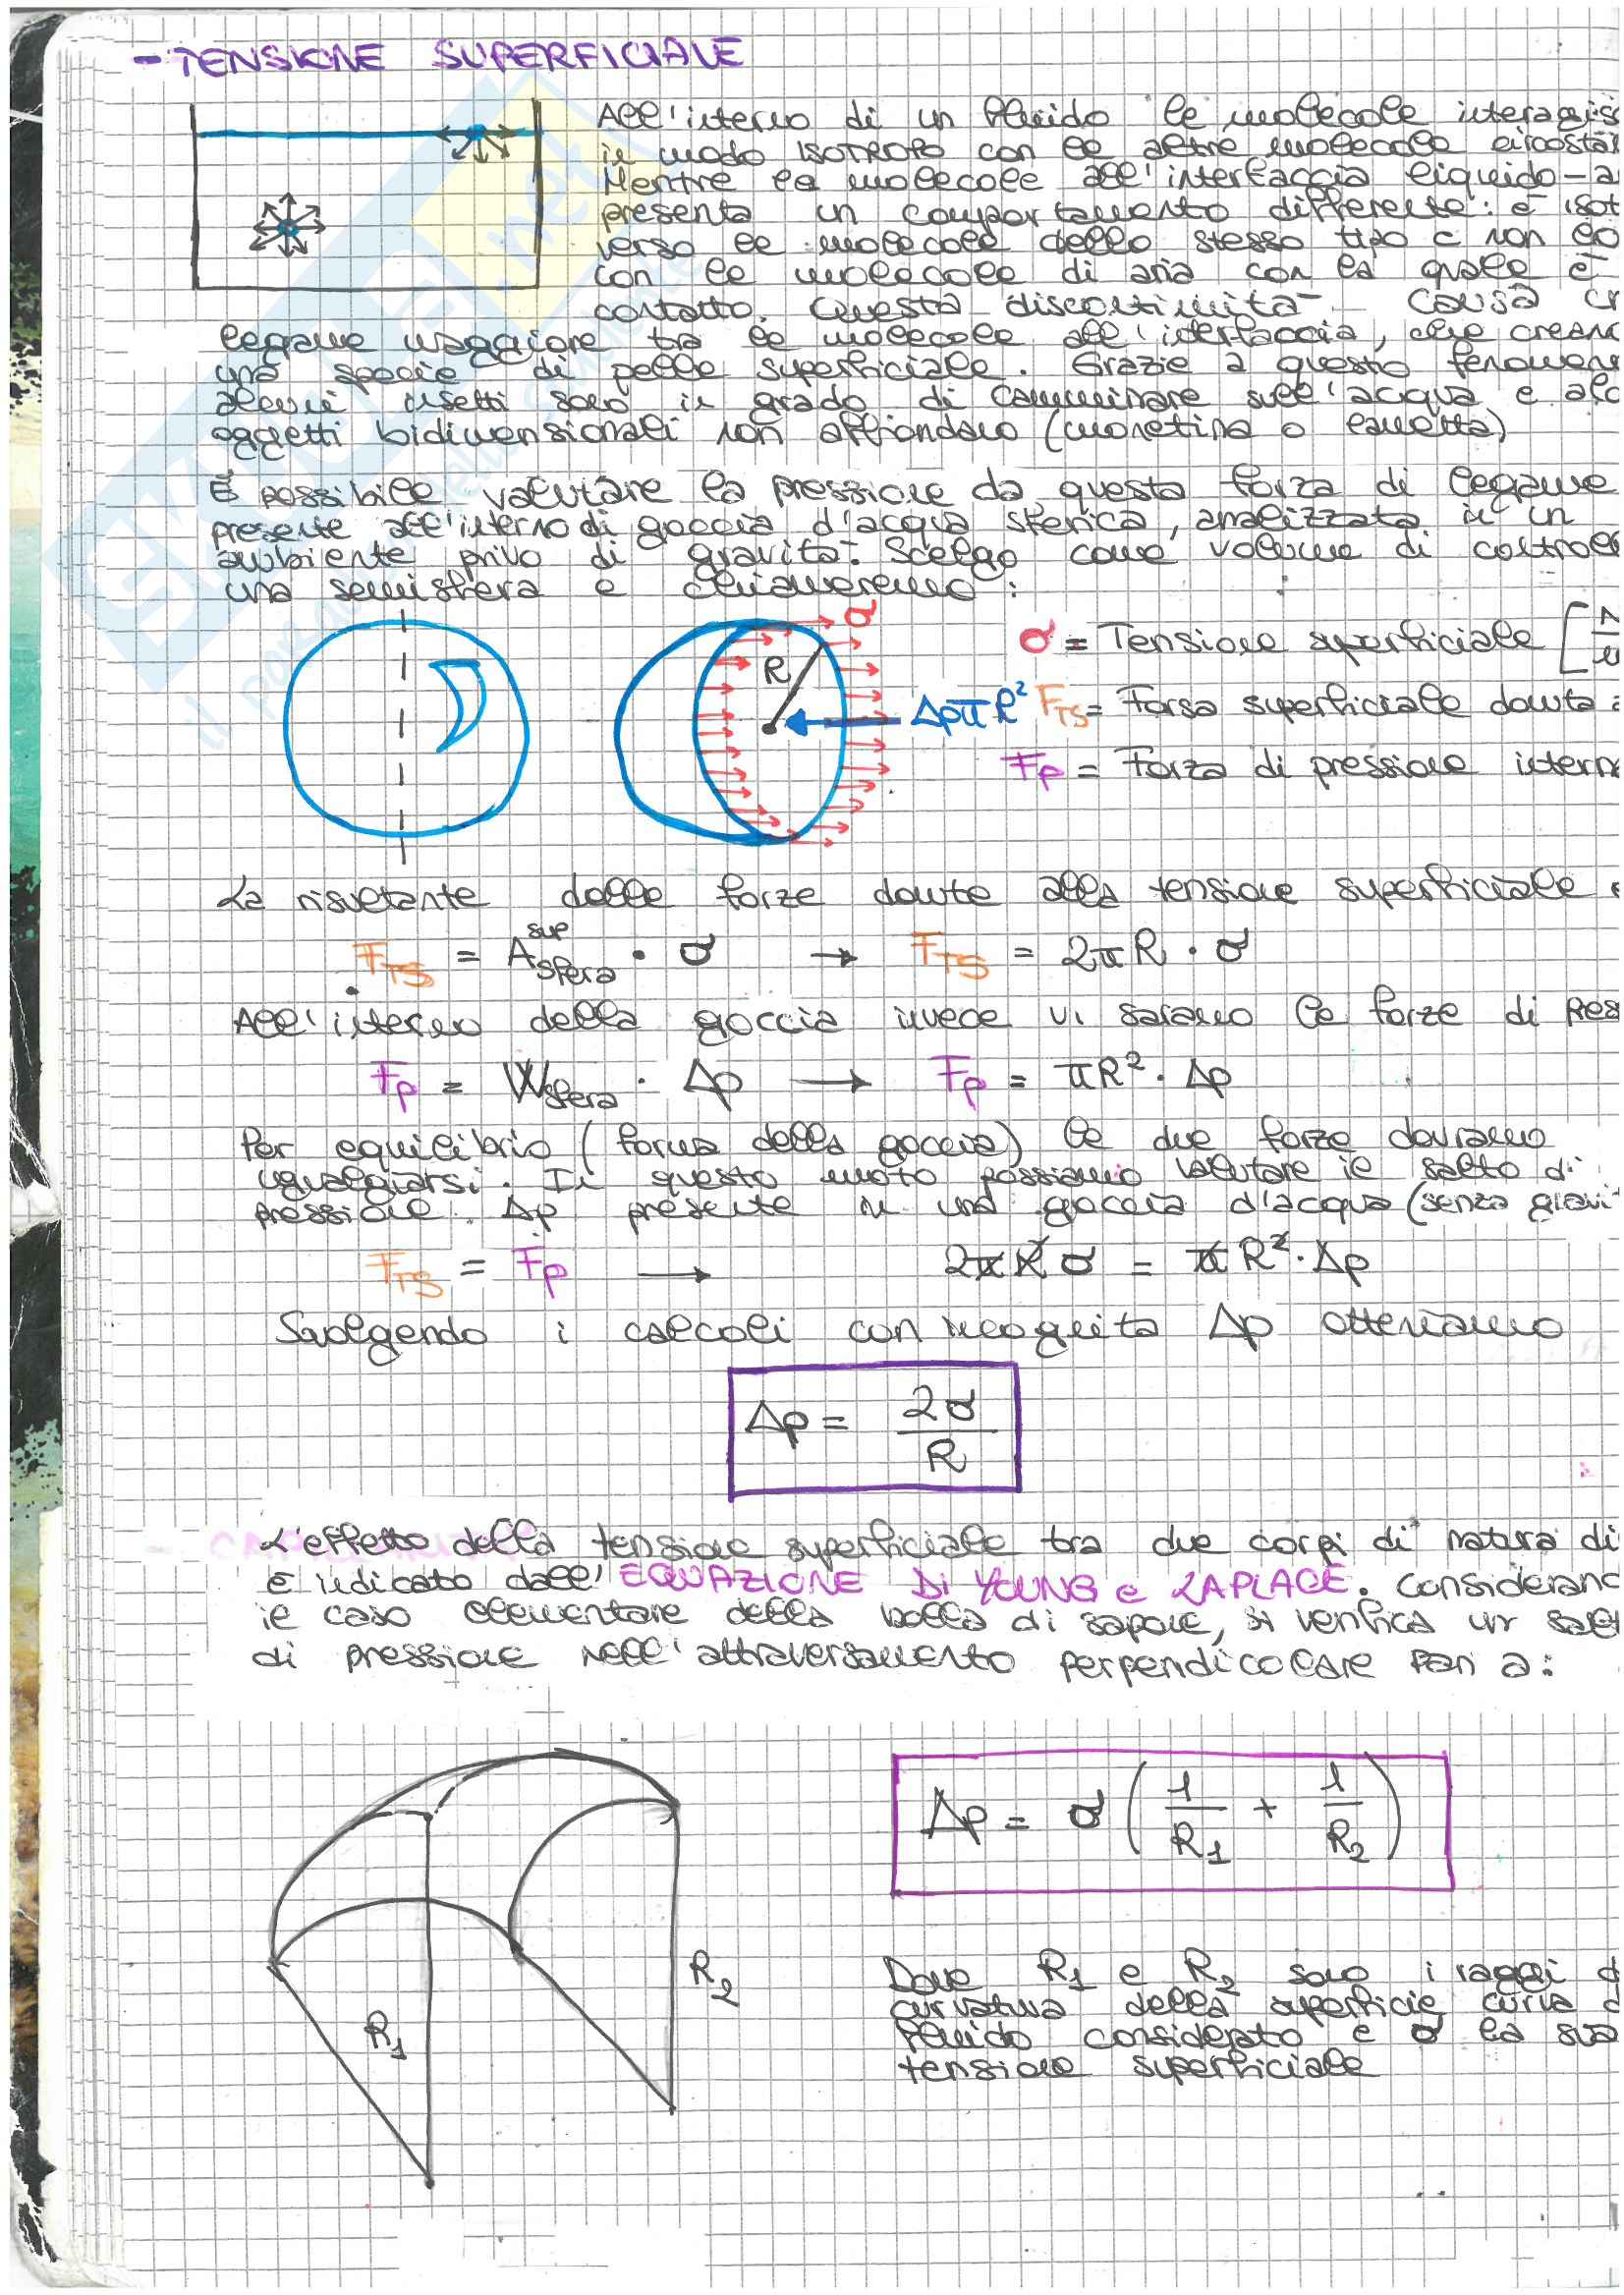 - TENSIONE SUPERFICIALE
All'interno di un fluido le molecole interagisc
in modo ISOTROPO con le altre molecole circostan
Mentre le molecole all'interfaccia liquido-a
presenta un comportamento differente: è isot
verso le molecole dello stesso tipo e non lo
con le molecole di aria con la quale è
contatto. Questa discontinuità causa
legame maggiore tra le molecole all'interfaccia, che creano
una specie di pelle superficiale. Grazie a questo fenomeno
alcuni insetti sono in grado di camminare sull'acqua e alc
oggetti bidimensionali non affondano (monetina o lametta)
È possibile valutare la pressione da questa forza di legame
presente all'interno di goccia d'acqua sferica, analizzata in un
ambiente privo di gravità. Scelgo come volume di control
una semisfera e chiameremo:
σ
σ = Tensione superficiale [N
R
Δp π R² F_TS = Forza superficiale dovuta a
F_P = Forza di pressione interna
La risultante delle forze dovute alla tensione superficiale
F_TS = A^sup_sfera · σ → F_TS = 2πR · σ
All'interno della goccia invece vi saranno le forze di pres
F_P = W_sfera · Δp → F_P = πR² · Δp
Per equilibrio (forma della goccia) le due forze dovranno
uguagliarsi. In questo moto possiamo valutare il salto di
pressione Δp presente in una goccia d'acqua (senza gravi
F_TS = F_P → 2πRσ = πR² · Δp
Svolgendo i calcoli con incognita Δp otteniamo
Δp = 2σ / R
L'effetto della tensione superficiale tra due corpi di natura di
è indicato dall' EQUAZIONE DI YOUNG e LAPLACE. Considerand
il caso elementare della bolla di sapone, si verifica un salt
di pressione nell'attraversamento perpendicolare pari a:
Δp = σ (1/R₁ + 1/R₂)
R₁
R₂
Dove R₁ e R₂ sono i raggi d
curvatura della superficie curva d
fluido considerato e σ la sua
tensione superficiale